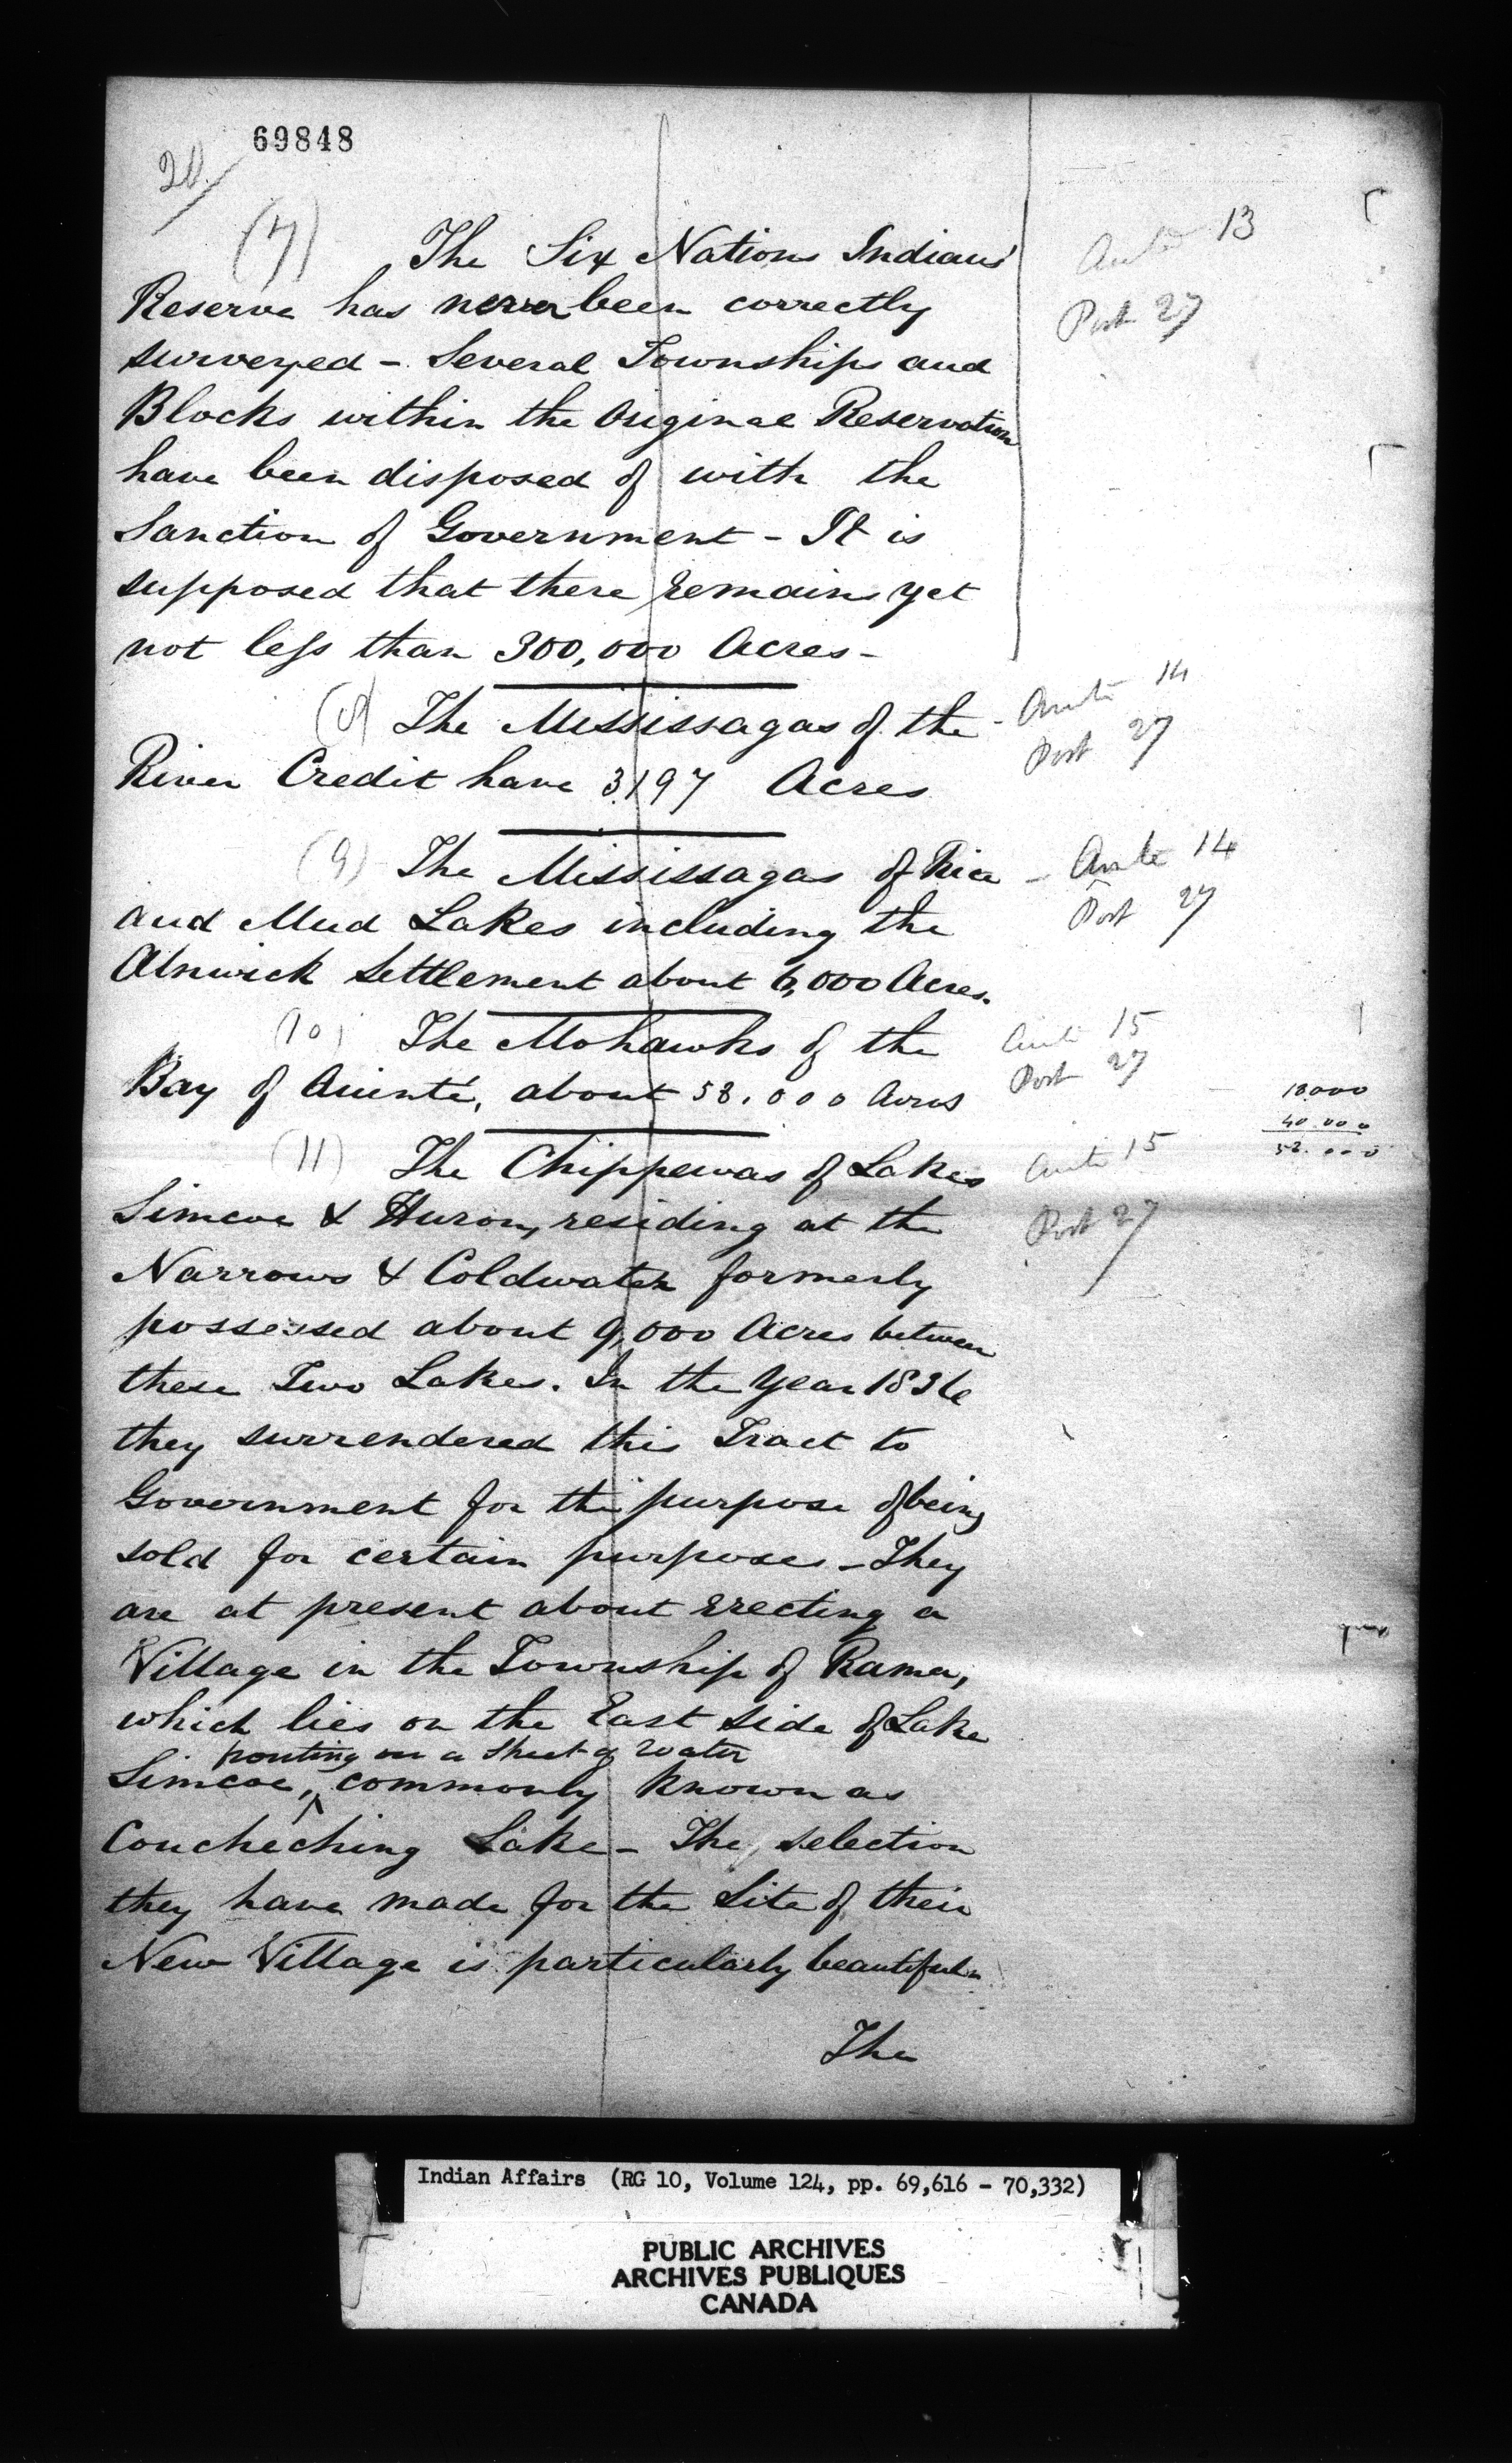 69848
20/
(7) The Six Nations Indians' Ante 13
Reserve has never been correctly Post 27
surveyed - Several Townships and
Blocks within the Original Reservation
have been disposed of with the
Sanction of Government - It is
supposed that there remains yet
not less than 300,000 Acres -
(8) The Mississagas of the - Ante 14
River Credit have 3197 Acres Post 27
(9) The Mississagas of Rice - Ante 14
and Mud Lakes including the Post 27
Alnwick Settlement about 6,000 Acres.
(10) The Mohawks of the Ante 15
Bay of Quinté, about 58.000 Acres Post 27
18000
40.000
58.000
(11) The Chippewas of Lakes Ante 15
Simcoe & Huron, residing at the Post 27
Narrows & Coldwater formerly
possessed about 9,000 Acres between
these Two Lakes. In the Year 1836
they surrendered this Tract to
Government for the purpose of being
sold for certain purposes - They
are at present about erecting a
Village in the Township of Rama,
which lies on the East Side of Lake
fronting on a Sheet of Water
Simcoe, ^ commonly known as
Coucheching Lake - The selection
they have made for the Site of their
New Village is particularly beautiful -
The
Indian Affairs (RG 10, Volume 124, pp. 69,616 - 70,332)
PUBLIC ARCHIVES
ARCHIVES PUBLIQUES
CANADA